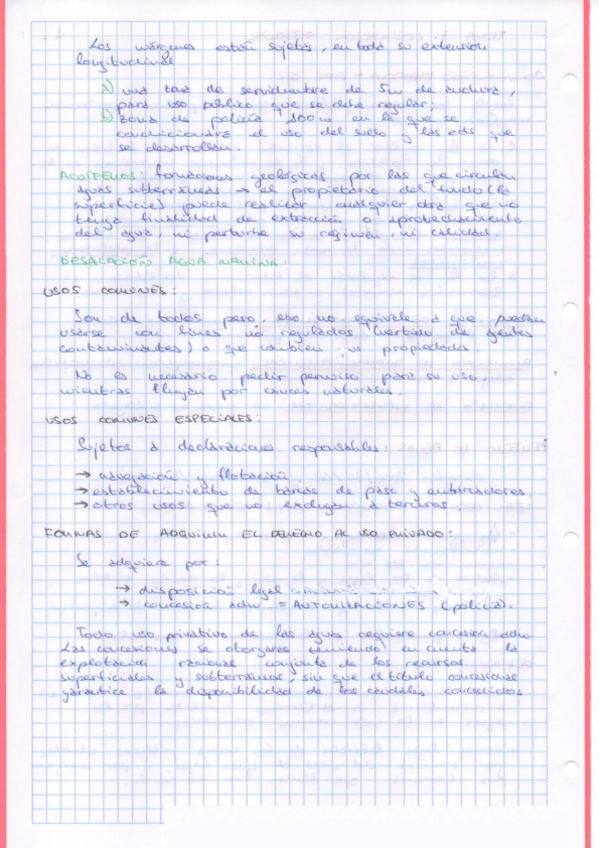 Los márgenes están sujetas, en toda su extensión
longitudinal
a) una zona de servidumbre de 5m de anchura,
para uso público que se debe regular;
b) zona de policía 100m en la que se
condicionará el uso del suelo y las acts que
se desarrollan.
ACUÍFEROS: formaciones geológicas por las que circulan
aguas subterráneas → el propietario del fundo (la
superficie) puede realizar cualquier obra que no
tenga finalidad de extracción o aprovechamiento
del agua, ni perturbe su régimen, ni calidad.
DESALACIÓN AGUA MARINA.
USOS COMUNES:
Son de todos pero, eso no equivale a que puedan
usarse con fines no regulados (vertido de agentes
contaminantes) o que cambien sus propiedades.
No es necesario pedir permiso para su uso,
mientras fluyan por cauces naturales.
USOS COMUNES ESPECIALES:
Sujetos a declaraciones responsables:
→ navegación y flotación.
→ establecimiento de barcas de paso y embarcaderos.
→ otros usos que no excluyan a terceros.
FORMAS DE ADQUIRIR EL DERECHO AL USO PRIVADO:
Se adquiere por:
→ disposición legal
→ concesión adm = AUTORIZACIONES (policía).
Todo uso privativo de las aguas requiere concesión adm
Las concesiones se otorgarán teniendo en cuenta la
explotación racional conjunta de los recursos
superficiales y subterráneos, sin que el título concesional
garantice la disponibilidad de los caudales concedidos